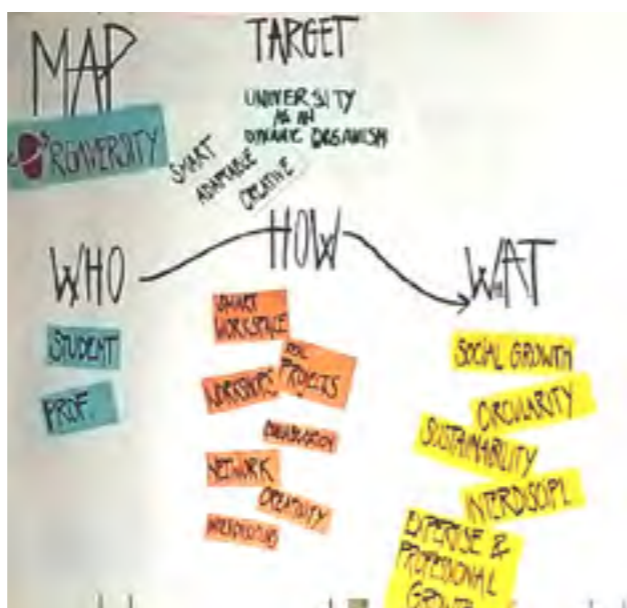 MAP
TARGET
UNIVERSITY
AS AN
DYNAMIC ORGANISM
ORGAVERSITY
SMART
ADAPTABLE
CREATIVE
WHO
HOW
WHAT
STUDENT
PROF.
SMART
WORKSPACE
PROJECTS
WORKSHOPS
NETWORK
CREATIVITY
SOCIAL GROWTH
CIRCULARITY
SUSTAINABILITY
INTERDISCIPL
EXPERTISE &
PROFESSIONAL
GROWTH